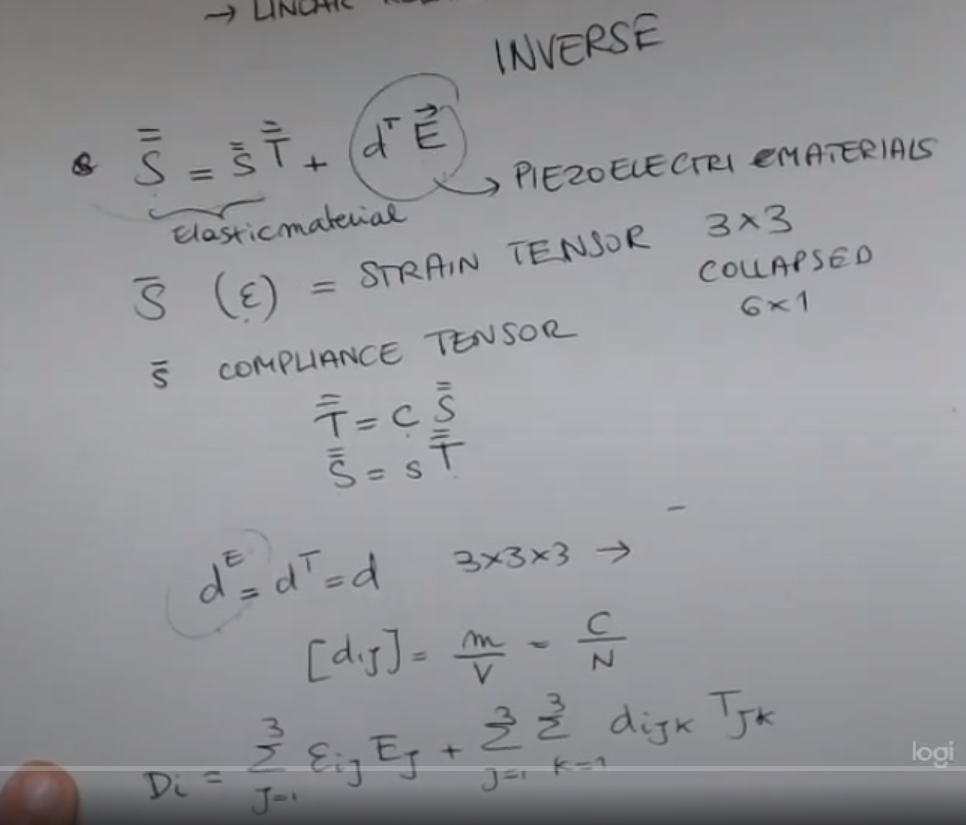 → LINEAR
INVERSE
S̿ = s̿ T̿ + dᵀ E⃗ → PIEZOELECTRI eMATERIALS
Elastic material
S̄ (ε) = STRAIN TENSOR 3×3
COLLAPSED
6×1
s̄ COMPLIANCE TENSOR
T̿ = C S̿
S̿ = s T̿
dᴱ = dᵀ = d 3×3×3 →
[dij] = m/V - C/N
Di = 3Σj=1 εij Ej + 3Σj=1 3Σk=1 dijk Tjk
logi